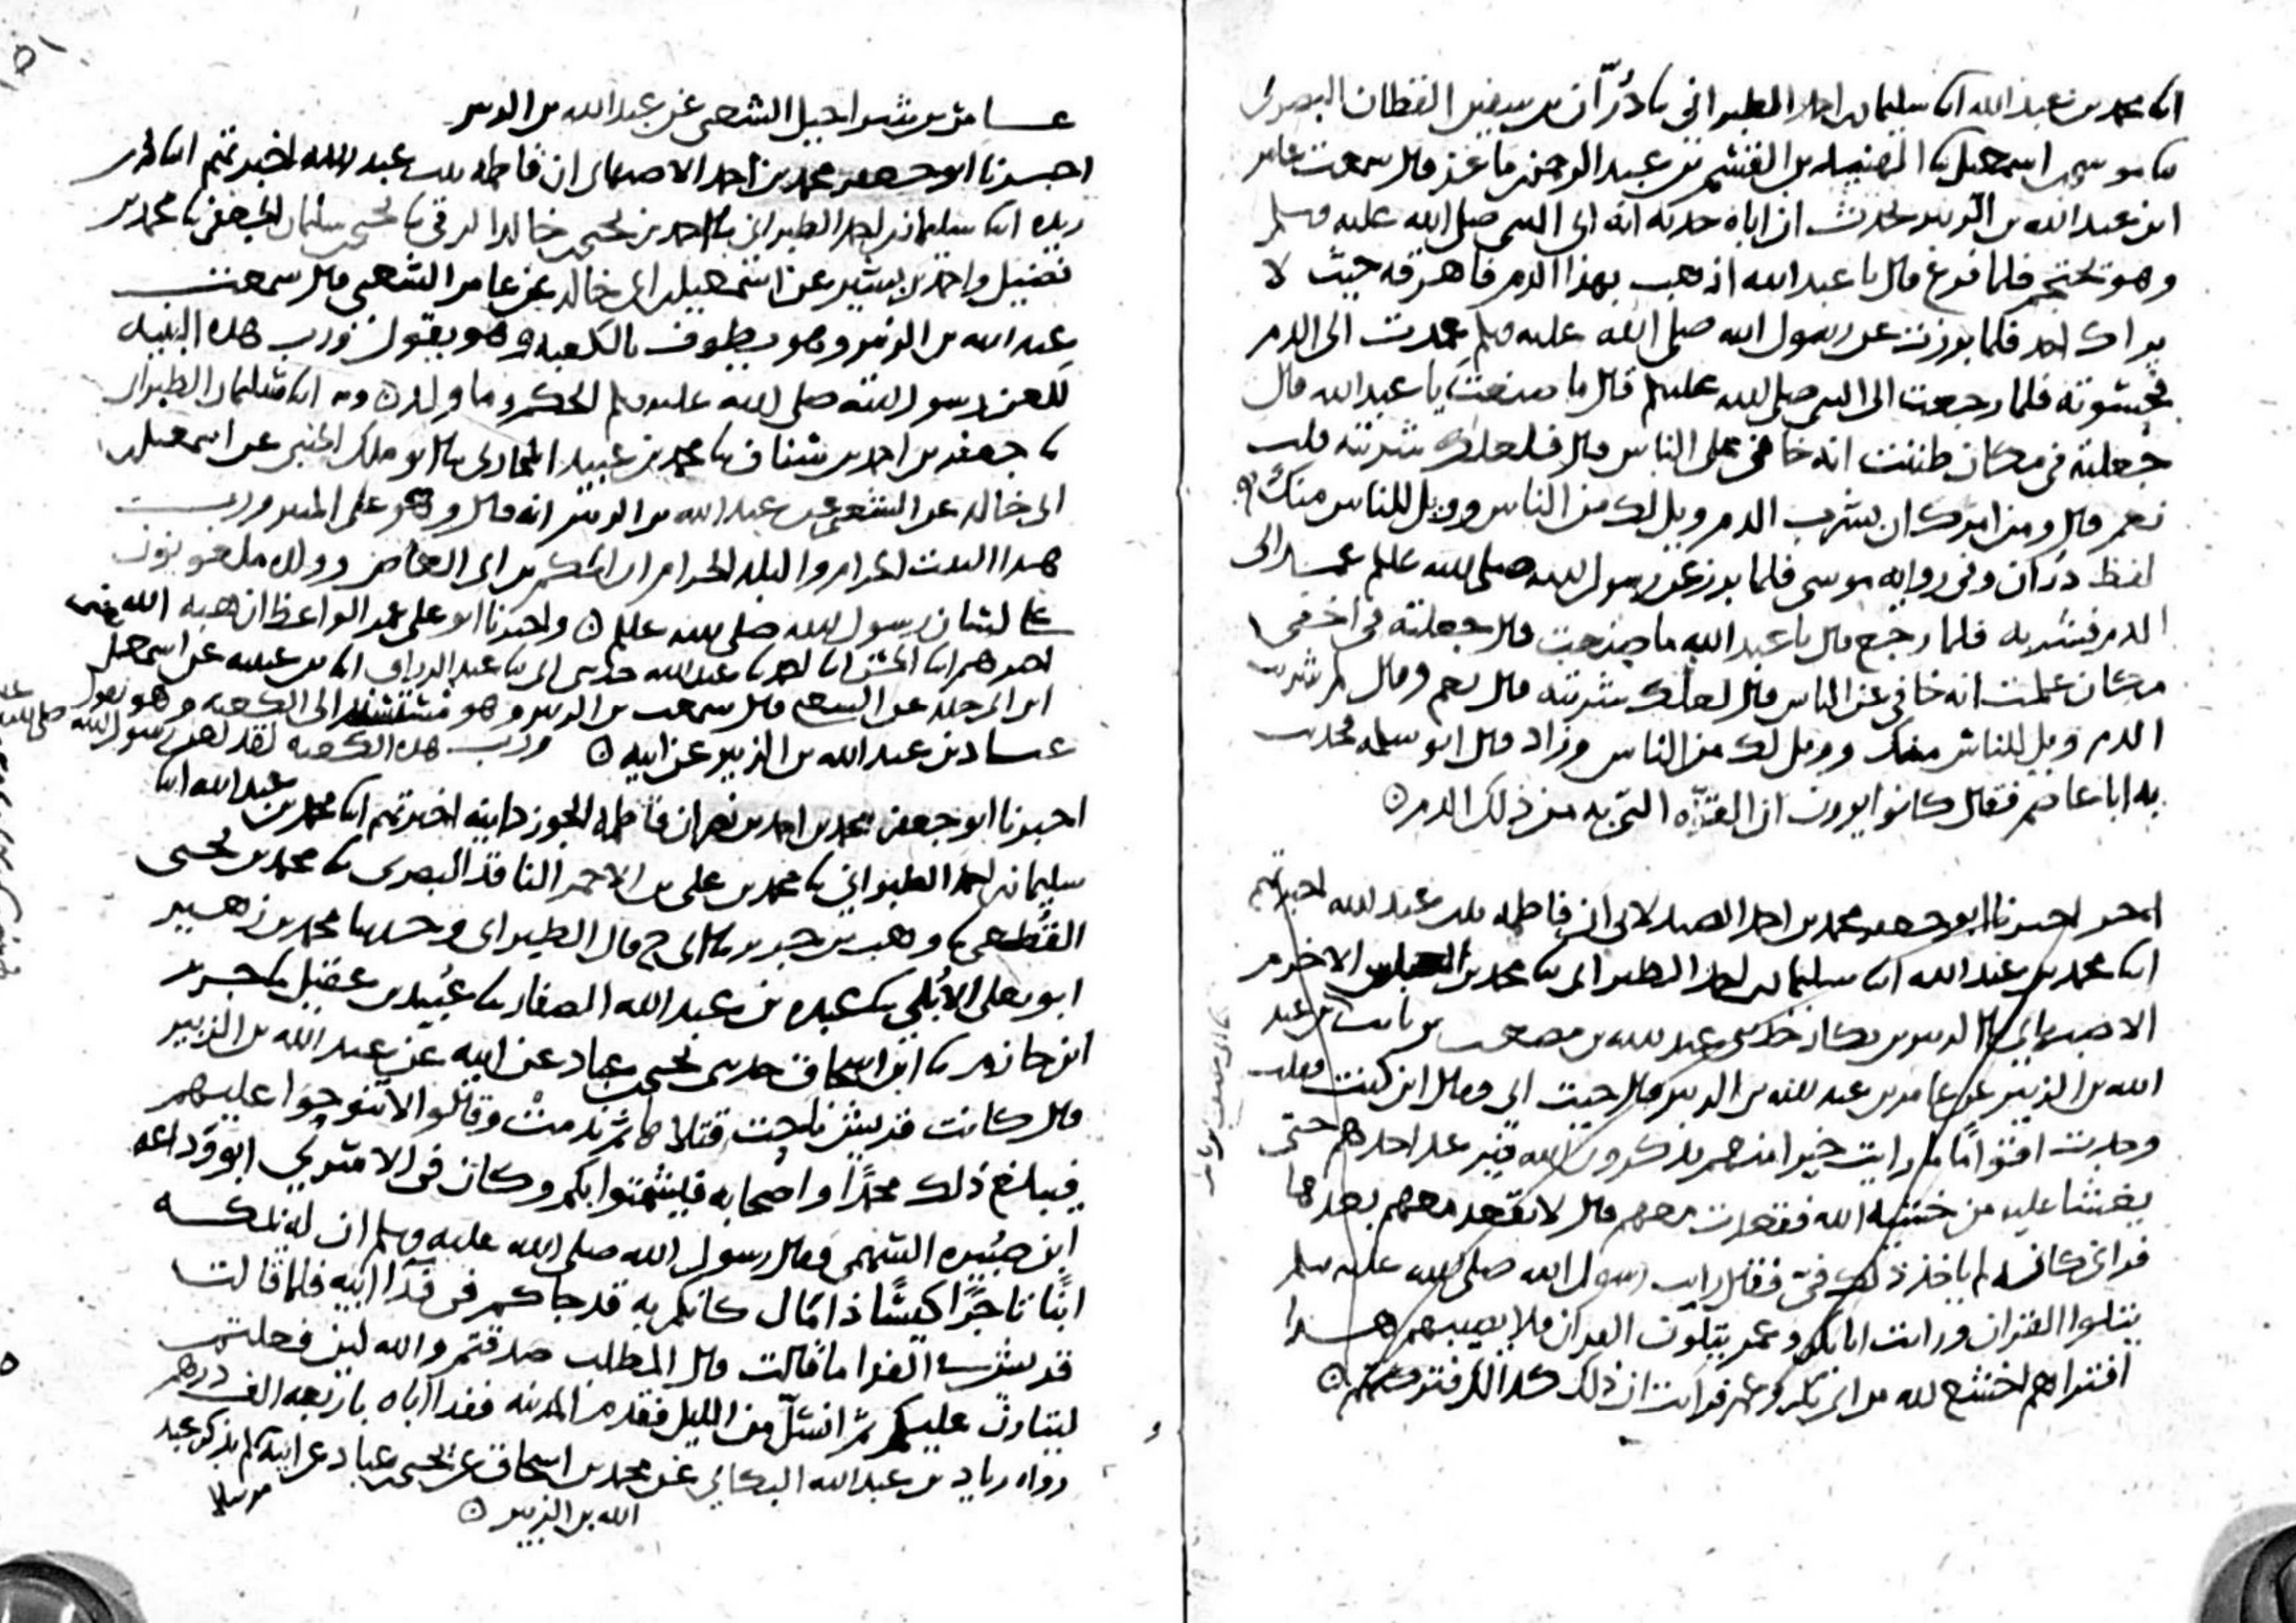 انا محمد بن عبد الله انا سليمان بن احمد الطبراني نا دُرّان بن سفين القطان البصري
نا موسى بن اسمعيل نا الهنيد بن القسم بن عبد الرحمن بن ماعز قال سمعت عامر
ابن عبد الله بن الزبير يحدث ان اباه حدثه انه اتى النبي صلى الله عليه وسلم
وهو يحتجم فلما فرغ قال يا عبد الله اذهب بهذا الدم فاهرقه حيث لا
يراك احد فلما برزت عن رسول الله صلى الله عليه وسلم عمدت الى الدم
فحسوته فلما رجعت الى النبي صلى الله عليه وسلم قال ما صنعت يا عبد الله قال
جعلته في مكان ظننت انه خافي على الناس قال فلعلك شربته قلت
نعم قال ومن امرك ان تشرب الدم ويل لك من الناس وويل للناس منك
لفظ دران وفي رواية موسى فلما برز عن رسول الله صلى الله عليه وسلم عمد الى
الدم فشربه فلما رجع قال يا عبد الله ما صنعت قال جعلته في اخفى
مكان علمت انه خافي عن الناس قال لعلك شربته قال نعم وقال لم شربت
الدم ويل للناس منك وويل لك من الناس وزاد قال ابو سلمة فحدثت
به ابا عاصم فقال كانوا يرون ان القوة التي به من ذلك الدم
اخر اخبرنا ابو جعفر محمد بن احمد الصيدلاني ان فاطمة بنت عبد الله اخبرتهم
انا محمد بن عبد الله انا سليمان بن احمد الطبراني نا محمد بن العباس الاخرم
الاصبهاني نا الزبير بن بكار حدثني عبد الله بن مصعب بن ثابت بن عبد
الله بن الزبير عن عامر بن عبد الله بن الزبير قال جيت ابي فقال اين كنت فقلت
وجدت اقواما ما رايت خيرا منهم يذكرون الله فيرعد احدهم حتى
يغشا عليه من خشية الله فقعدت معهم قال لا تقعد معهم بعدها
فراى كانه لم ياخذ ذلك في فقال رايت رسول الله صلى الله عليه وسلم
يتلوا القران ورايت ابا بكر وعمر يتلون القران فلا يصيبهم هذا
افتراهم اخشع لله من ابي بكر وعمر فرايت ان ذلك كذلك فتركتهم
عامر بن شراحيل الشعبي عن عبد الله بن الزبير
اخبرنا ابو جعفر محمد بن احمد الاصبهاني ان فاطمة بنت عبد الله اخبرتهم انا ابن
ريده انا سليمان بن احمد الطبراني نا احمد بن يحيى بن خالد الرقي نا يحيى بن سليمان الجعفي نا محمد بن
فضيل واحمد بن بشير عن اسمعيل بن ابي خالد عن عامر الشعبي قال سمعت
عبد الله بن الزبير وهو يطوف بالكعبة وهو يقول ورب هذه البنية
للعن رسول الله صلى الله عليه وسلم الحكم وما ولد وبه انا سليمان الطبراني
نا جعفر بن احمد بن سنان نا محمد بن عبيد المحاربي نا ابو مالك الجنبي عن اسمعيل بن
ابي خالد عن الشعبي عن عبد الله بن الزبير انه قال وهو على المنبر ورب
هذا البيت الحرام والبلد الحرام ان الحكم بن ابي العاص وولده ملعونون
على لسان رسول الله صلى الله عليه وسلم واخبرنا ابو علي عمر الواعظ ان هبة الله
اخبرهم انا الحسن انا احمد نا عبد الله حدثني ابي نا عبد الرزاق انا ابن عيينة عن اسمعيل
ابن ابي خالد عن الشعبي قال سمعت بن الزبير وهو مستند الى الكعبة وهو يقول
ورب هذه الكعبة لقد لعن رسول الله صلى الله
عباد بن عبد الله بن الزبير عن ابيه
اخبرنا ابو جعفر محمد بن احمد بن نصر ان فاطمة الجوزدانية اخبرتهم انا محمد بن عبد الله انا
سليمان بن احمد الطبراني نا محمد بن علي بن الاحمر الناقد البصري نا محمد بن يحيى
القُطعي نا وهب بن جرير نا ابي ح قال الطبراني وحدثنا محمد بن زهير
ابو يعلى الأُبلي نا عبدة بن عبد الله الصفار نا عُبيد بن عقيل نا جرير
ابن حازم نا ابن اسحاق حدثني يحيى بن عباد عن ابيه عن عبد الله بن الزبير
قال كانت قريش ناحت قتلاها ثم ندمت وقالوا لا تنوحوا عليهم
فيبلغ ذلك محمدًا واصحابه فيشمتوا بكم وكان في الاسرى ابو وداعة
ابن صُبيرة السهمي فقال رسول الله صلى الله عليه وسلم ان له بمكة
ابنًا تاجرًا كيسًا ذا مال كانكم به قد جاكم في فدا ابيه فلما قالت
قريش في الفدا ما قالت قال المطلب صدقتم والله لين فعلتم
ليتاربن عليكم ثم انسل من الليل فقدم المدينة ففدا اباه باربعة الف درهم
رواه زياد بن عبد الله البكائي عن محمد بن اسحاق عن يحيى بن عباد عن ابيه لم يذكر عبد
الله بن الزبير مرسلا